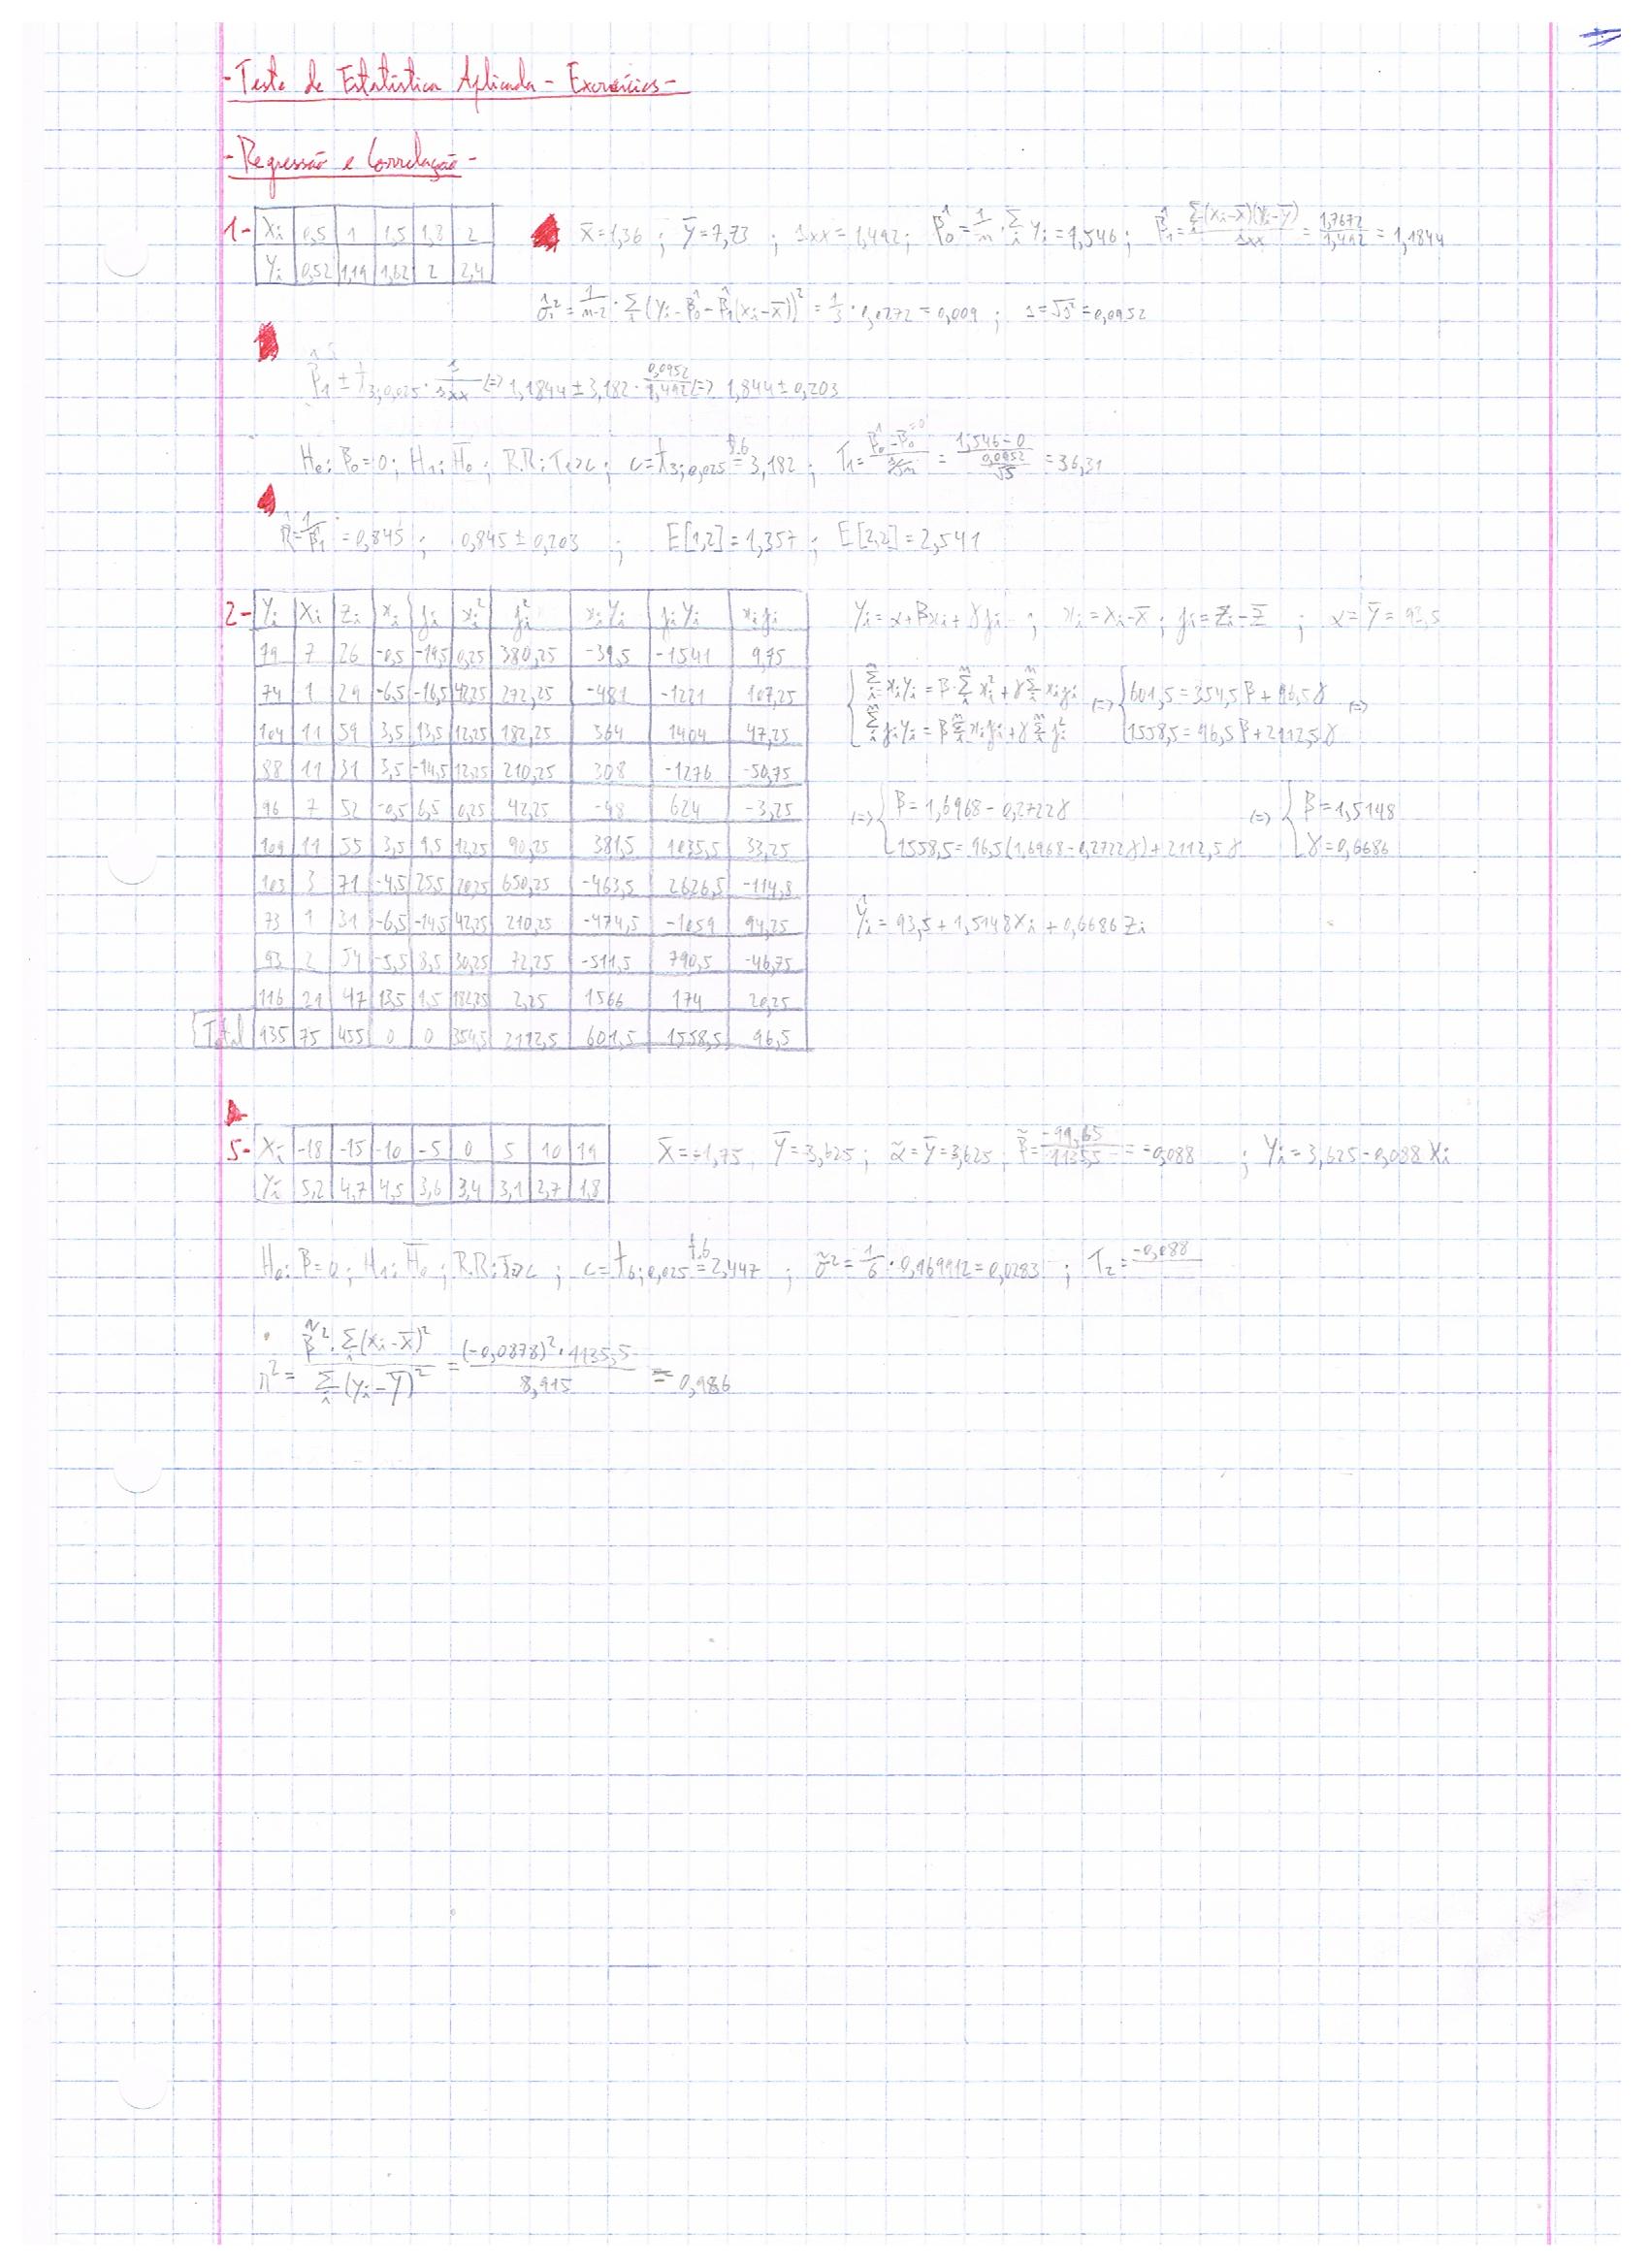 - Teste de Estatística Aplicada - Exercícios -
- Regressão e Correlação -
1- Xi 0,5 1 1,5 1,8 2
Yi 0,52 1,19 1,62 2 2,4
x̄=1,36 ; ȳ=7,73 ; sxx=1,492 ; β̂0=1/n·Σi Yi=1,546 ; β̂1=Σ(xi-x̄)(yi-ȳ)/sxx=1,7672/1,492=1,1844
σ̂²=1/(n-2)·Σi(yi-β̂0-β̂1(xi-x̄))²=1/3·0,0272=0,009 ; s=√s²=0,0952
β̂1 ± t3;0,025·s/sxx (=) 1,1844±3,182·0,0952/1,492 (=) 1,844±0,203
H0: β0=0 ; H1: H̄0 ; R.R: T1>c ; c=t3;0,025=3,182 ; T1=(β̂0-β0=0)/(s/√n)=(1,546-0)/(0,0952/√5)=36,31
R̂=1/β̂1=0,845 ; 0,845±0,203 ; E[1,2]=1,357 ; E[2,2]=2,541
2- Yi Xi Zi xi ji xi² ji² xiYi jiYi xiji
79 7 26 -0,5 -19,5 0,25 380,25 -39,5 -1541 9,75
74 1 29 -6,5 -16,5 42,25 272,25 -481 -1221 107,25
104 11 59 3,5 13,5 12,25 182,25 364 1404 47,25
88 11 31 3,5 -14,5 12,25 210,25 308 -1276 -50,75
96 7 52 -0,5 6,5 0,25 42,25 -48 624 -3,25
109 11 55 3,5 9,5 12,25 90,25 381,5 1035,5 33,25
103 3 71 -4,5 25,5 20,25 650,25 -463,5 2626,5 -114,8
73 1 31 -6,5 -14,5 42,25 210,25 -474,5 -1059 94,25
93 2 54 -5,5 8,5 30,25 72,25 -511,5 790,5 -46,75
116 21 47 13,5 1,5 182,25 2,25 1566 174 20,25
Total 935 75 455 0 0 354,5 2112,5 601,5 1558,5 96,5
Yi=α+βxi+γji ; xi=Xi-X̄ ; ji=Zi-Z̄ ; α=Ȳ=93,5
Σxiyi=β·Σxi²+γΣxiji (=) 601,5=354,5β+96,5γ (=)
Σjiyi=βΣxiji+γΣji² 1558,5=96,5β+2112,5γ
(=) β=1,6968-0,2722γ (=) β=1,5148
1558,5=96,5(1,6968-0,2722γ)+2112,5γ γ=0,6686
Ŷi=93,5+1,5148Xi+0,6686Zi
5- Xi -18 -15 -10 -5 0 5 10 19
Yi 5,2 4,7 4,5 3,6 3,4 3,1 2,7 1,8
X̄=-1,75 ȳ=3,625 ; α̃=ȳ=3,625 ; β̃=-99,65/1135,5=-0,088 ; Yi=3,625-0,088Xi
H0: β=0 ; H1: H̄0 ; R.R: T2>c ; c=t6;0,025=2,447 ; σ̃²=1/6·0,169912=0,0283 ; T2=-0,088
r²=β̃²·Σi(xi-x̄)²/Σi(yi-ȳ)²=(-0,0878)²·1135,5/8,915=0,986